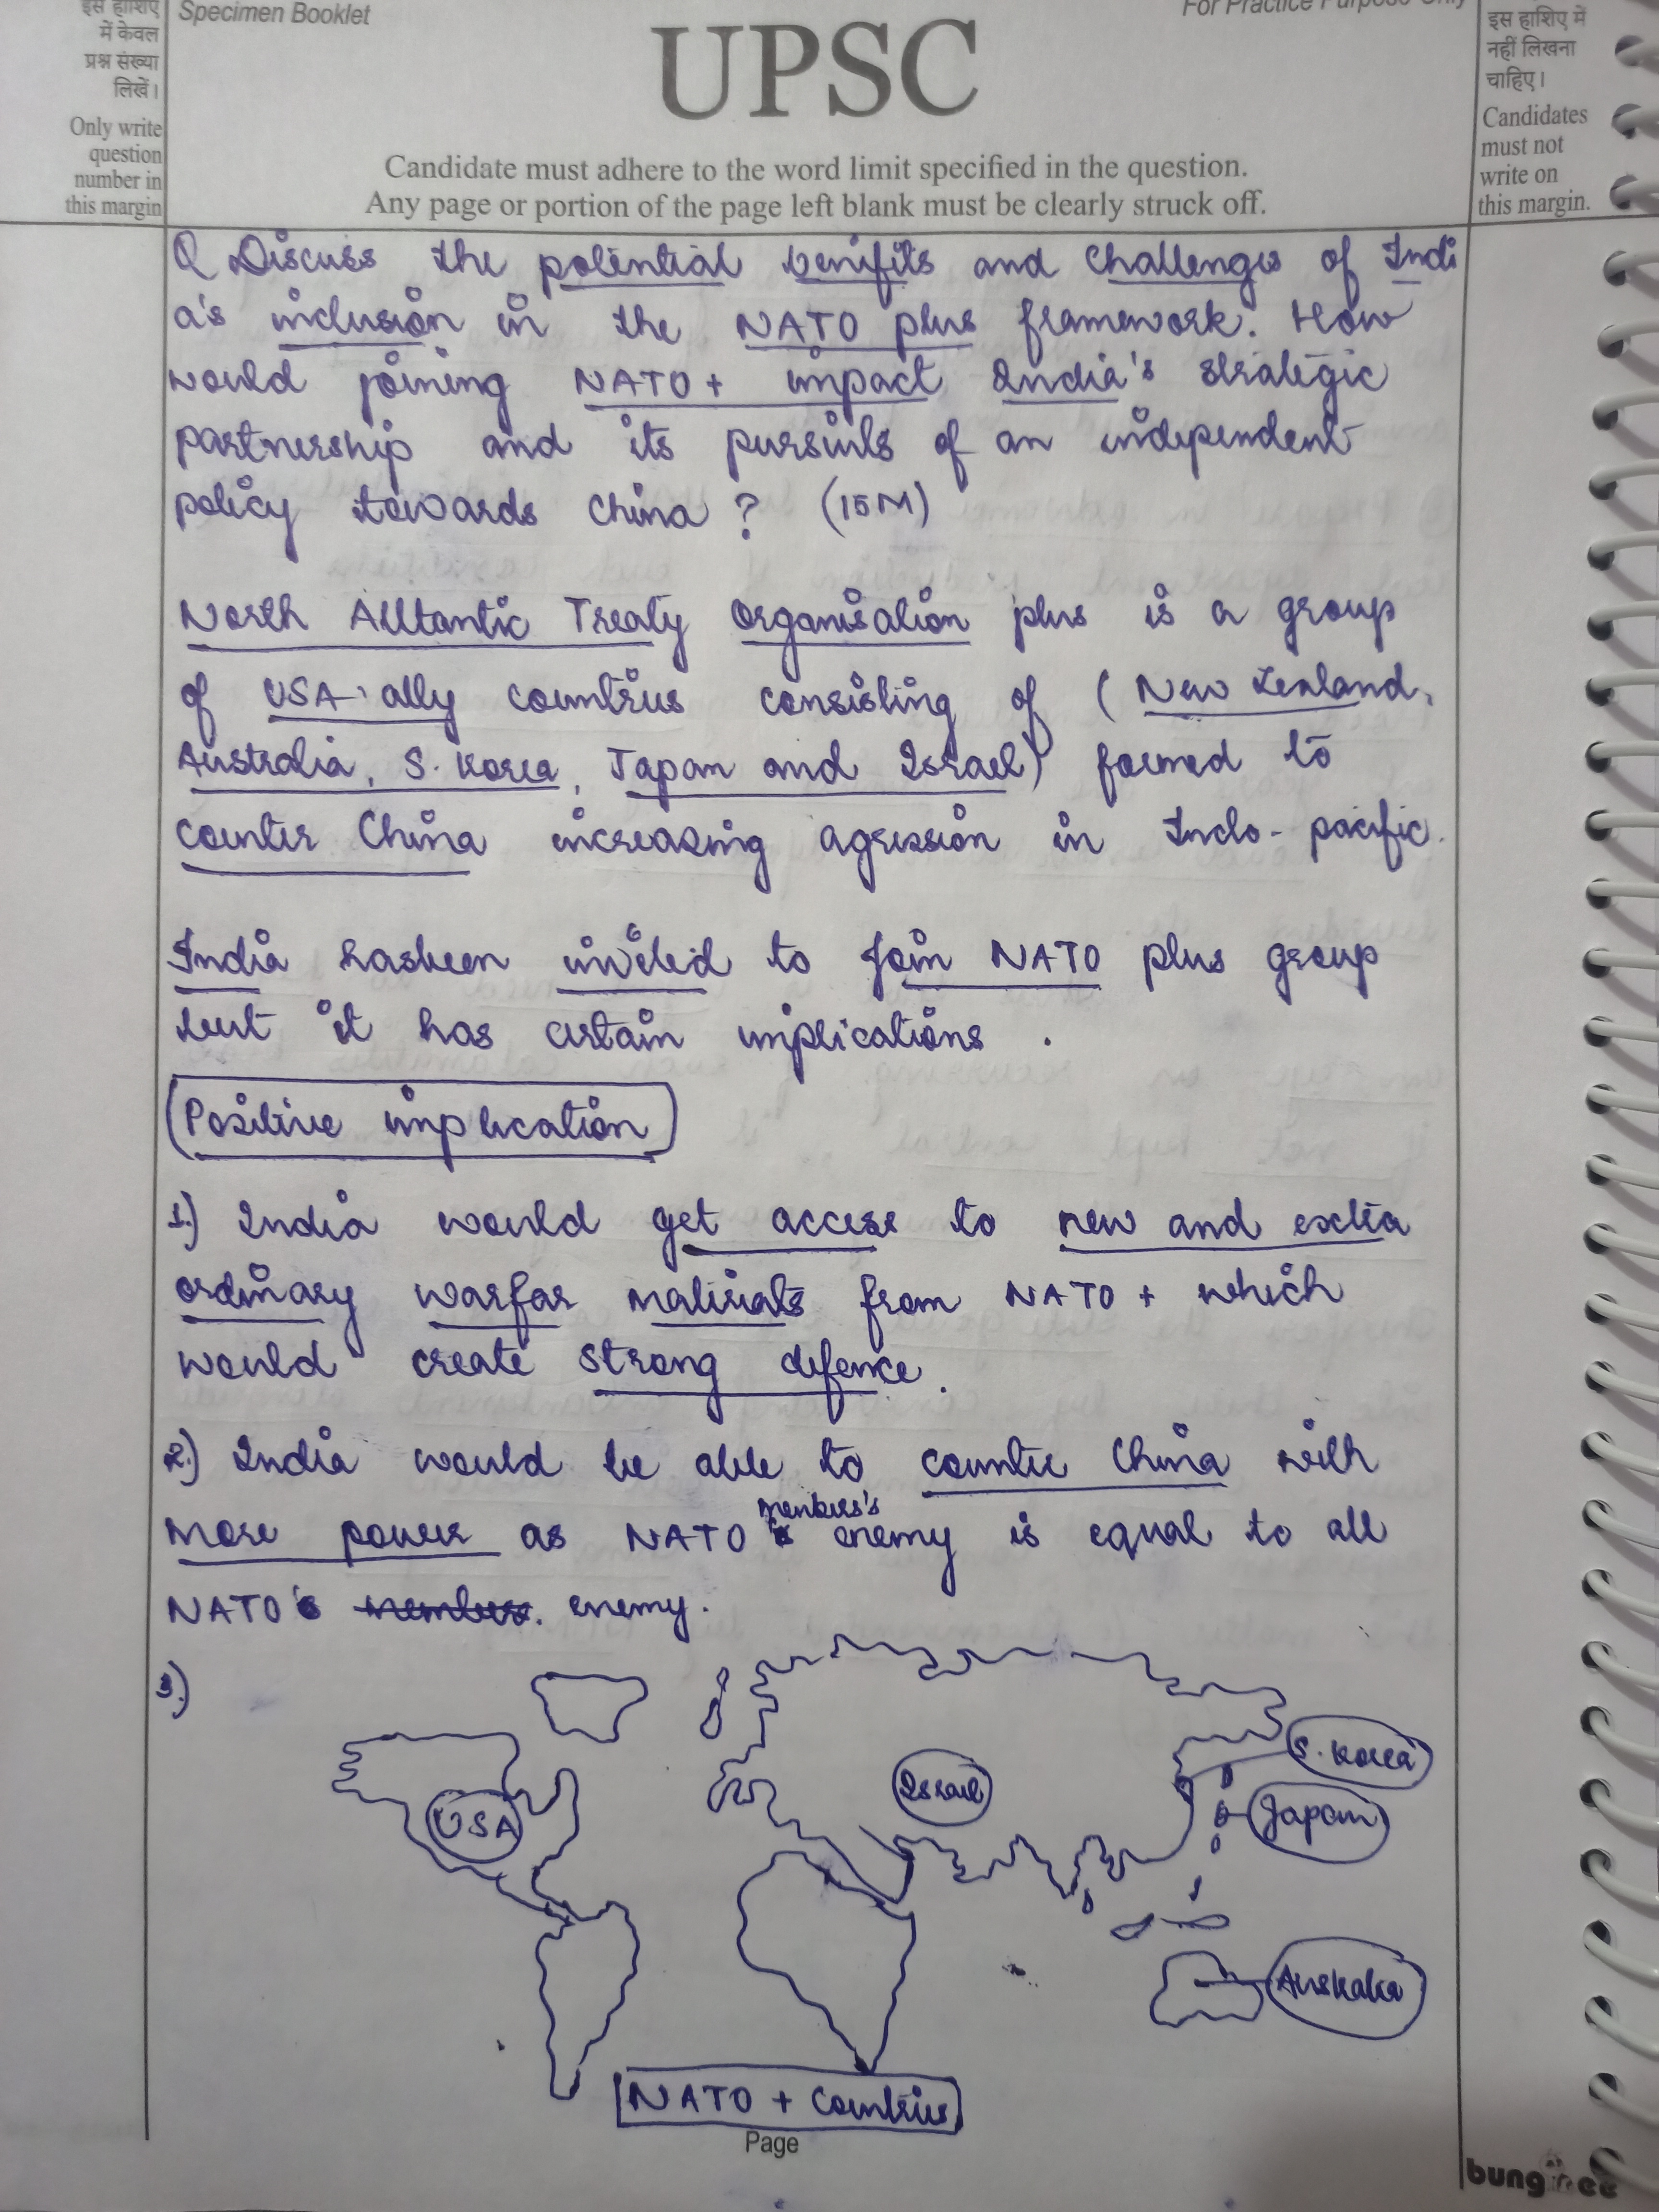 इस हाशिए
में केवल
प्रश्न संख्या
लिखें।
Only write
question
number in
this margin
Specimen Booklet
For Practice Purpose Only
UPSC
Candidate must adhere to the word limit specified in the question.
Any page or portion of the page left blank must be clearly struck off.
इस हाशिए में
नहीं लिखना
चाहिए।
Candidates
must not
write on
this margin.
Q Discuss the potential benifits and challenges of Indi
a's inclusion in the NATO plus framework. How
would joining NATO+ impact India's strategic
partnership and its pursuits of an independent
policy towards China ? (15M)
North Alltantic Treaty Organisation plus is a group
of USA ally countries consisting of (New Zealand,
Australia, S. Korea, Japan and Israel) formed to
counter China increasing agression in Indo-pacific.
India hasbeen invited to join NATO plus group
but it has certain implications .
Positive implication
1.) India would get access to new and extra
ordinary warfar materials from NATO + which
would create strong defence.
2.) India would be able to counter China with
more power as NATO members's enemy is equal to all
NATO's members. enemy.
3.)
S. Korea
Israel
USA
Japan
Australia
NATO + Countries
Page